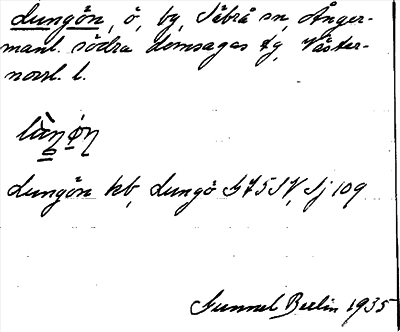 Lungön, ö, by, Säbrå sn, Ånger-
manl. södra domsagas tg, Väster-
norrl. l.
Lungön kb, Lungö G75SV, Sj 109
Gunnel Beslin 1935